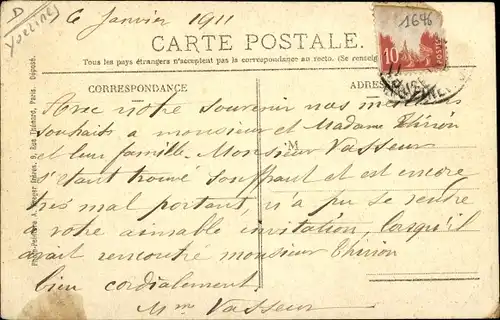 D
Yvelines
6 Janvier 1911
1646
10
POSTES
CARTE POSTALE.
Tous les pays étrangers n'acceptent pas la correspondance au recto. (Se renseig
CORRESPONDANCE
ADRES
Avec notre souvenir nos meilleurs
souhaits a monsieur et Madame Thirion
et leur famille. Monsieur Vasseur
M
s'étant trouvé souffrant et est encore
très mal portant, n'a pu se rendre
a votre aimable invitation, lorsqu'il
avait rencontré monsieur Thirion
bien cordialement
Mme Vasseur
Frères, 9, Rue Thénard, Paris. Déposé.